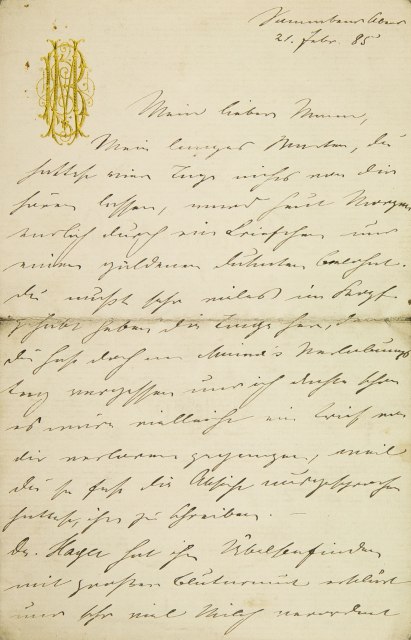 Sonnabend Abend
21. Febr. 85
Mein lieber Mann,
Mein langes Warten, du
hattest vier Tage nichts von dir
hören lassen, ward heut Morgen
endlich durch ein Briefchen und
einen goldenen Dukaten belohnt.
Du mußt sehr vieles im Kopf
gehabt haben die Tage her, denn
du hast doch Verlobungs
tag vergessen und ich dachte schon
es wäre vielleicht ein Brief von
dir verloren gegangen, weil
du so fest die Absicht ausgesprochen
hattest, ihr zu schreiben. –
Dr. hat ihr Übelbefinden
mit großer Blutarmut erklärt
und sehr viel Milch verordnet